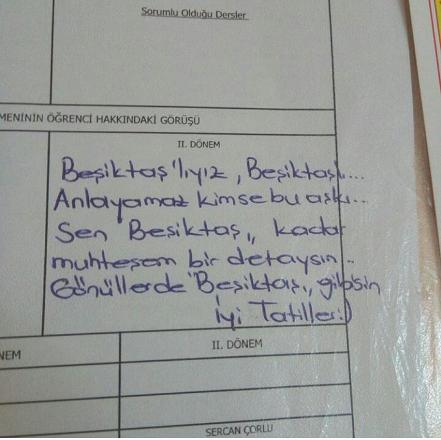 Sorumlu Olduğu Dersler
MENİNİN ÖĞRENCİ HAKKINDAKİ GÖRÜŞÜ
II. DÖNEM
Beşiktaş'lıyız, Beşiktaşlı...
Anlayamaz kimse bu aşkı...
Sen "Beşiktaş,, kadar
muhteşem bir detaysın..
Gönüllerde "Beşiktaş,, gibisin
İyi Tatiller:)
NEM
II. DÖNEM
SERCAN ÇORLU